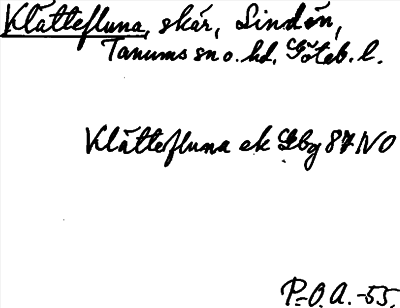 Klåttefluna, skär, Lindön,
Tanums sn o. hd. Göteb. l.
Klåttefluna ek Gbg 87 NO
P.-O.A. -55.